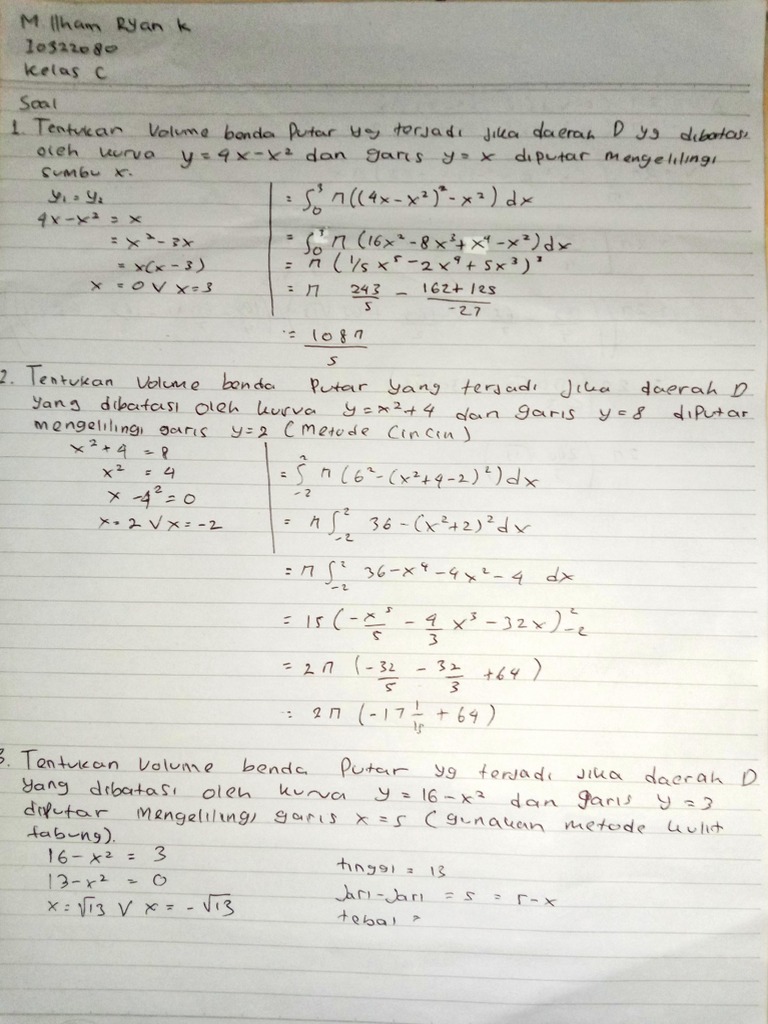 M Ilham Ryan K
I0322080
Kelas C
Soal
1. Tentukan Volume benda Putar yg terjadi jika daerah D yg dibatasi
oleh kurva y = 4x - x² dan garis y = x diputar mengelilingi
sumbu x.
y₁ = y₂
4x - x² = x
= x² - 3x
= x(x - 3)
x = 0 V x = 3
= ∫₀³ π((4x - x²)² - x²) dx
= ∫₀³ π (16x² - 8x³ + x⁴ - x²) dx
= π (1/5 x⁵ - 2x⁴ + 5x³)³
= π 243/5 - 162 + 125/-27
= 108π/5
2. Tentukan Volume benda Putar yang terjadi Jika daerah D
yang dibatasi oleh kurva y = x² + 4 dan garis y = 8 diputar
mengelilingi garis y = 2 (Metode Cincin)
x² + 4 = 8
x² = 4
x - 4² = 0
x = 2 V x = -2
= ∫₋₂² π (6² - (x² + 4 - 2)²) dx
= π ∫₋₂² 36 - (x² + 2)² dx
= π ∫₋₂² 36 - x⁴ - 4x² - 4 dx
= 15 (-x⁵/5 - 4/3 x³ - 32x)₋₂²
= 2π (-32/5 - 32/3 + 64)
= 2π (-17 1/15 + 64)
3. Tentukan Volume benda Putar yg terjadi jika daerah D
yang dibatasi oleh kurva y = 16 - x² dan garis y = 3
diputar mengelilingi garis x = 5 (gunakan metode kulit
tabung).
16 - x² = 3
13 - x² = 0
x = √13 V x = -√13
tinggi = 13
Jari-Jari = 5 = 5 - x
tebal =